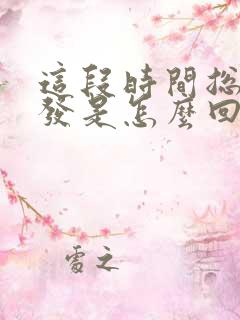 這段時間總
發是怎麼回
處之